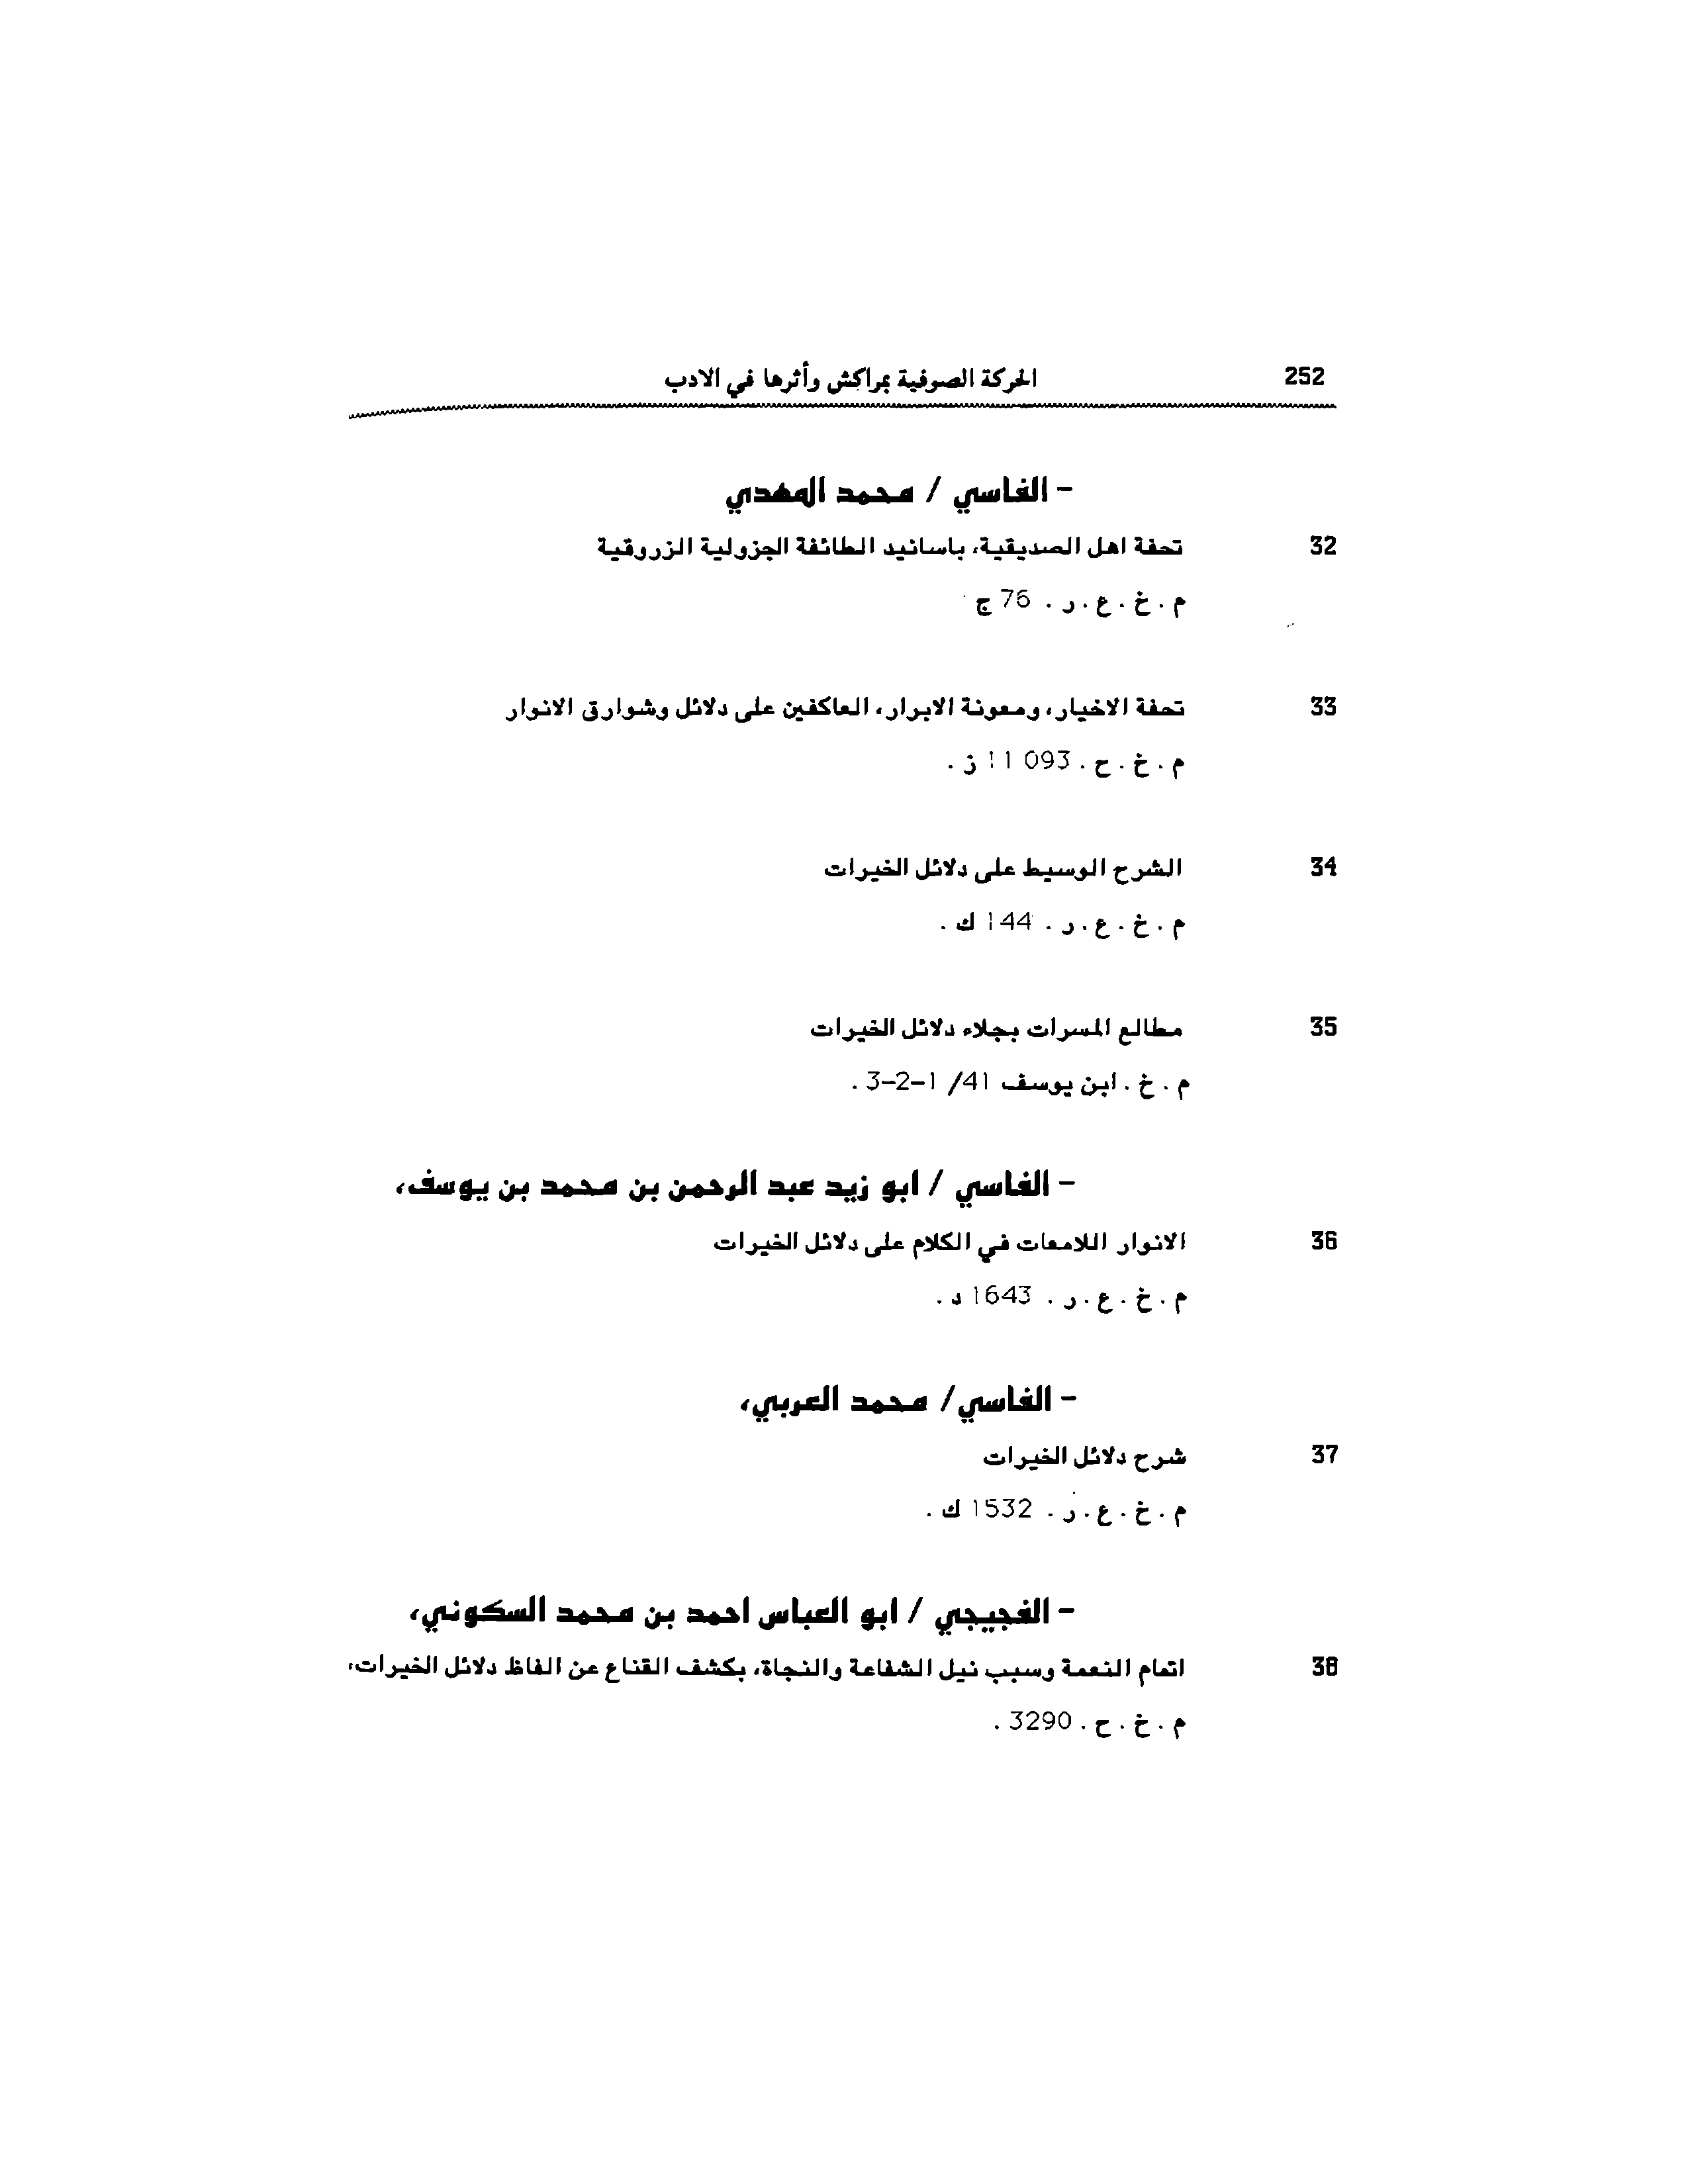 252 الحركة الصوفية بمراكش وأثرها في الادب
- الفاسي / محمد المهدي
32 تحفة اهل الصديقية، باسانيد الطائفة الجزولية الزروقية
م . خ . ع . ر . 76 ج
33 تحفة الاخيار، ومعونة الابرار، العاكفين على دلائل وشوارق الانوار
م . خ . ح . 11 093 ز .
34 الشرح الوسيط على دلائل الخيرات
م . خ . ع . ر . 144 ك .
35 مطالع المسرات بجلاء دلائل الخيرات
م . خ . ابن يوسف 41/ 1-2-3 .
- الفاسي / ابو زيد عبد الرحمن بن محمد بن يوسف،
36 الانوار اللامعات في الكلام على دلائل الخيرات
م . خ . ع . ر . 1643 د .
- الفاسي/ محمد العربي،
37 شرح دلائل الخيرات
م . خ . ع . ر . 1532 ك .
- الفجيجي / ابو العباس احمد بن محمد السكوني،
38 اتمام النعمة وسبب نيل الشفاعة والنجاة، بكشف القناع عن الفاظ دلائل الخيرات،
م . خ . ح . 3290 .